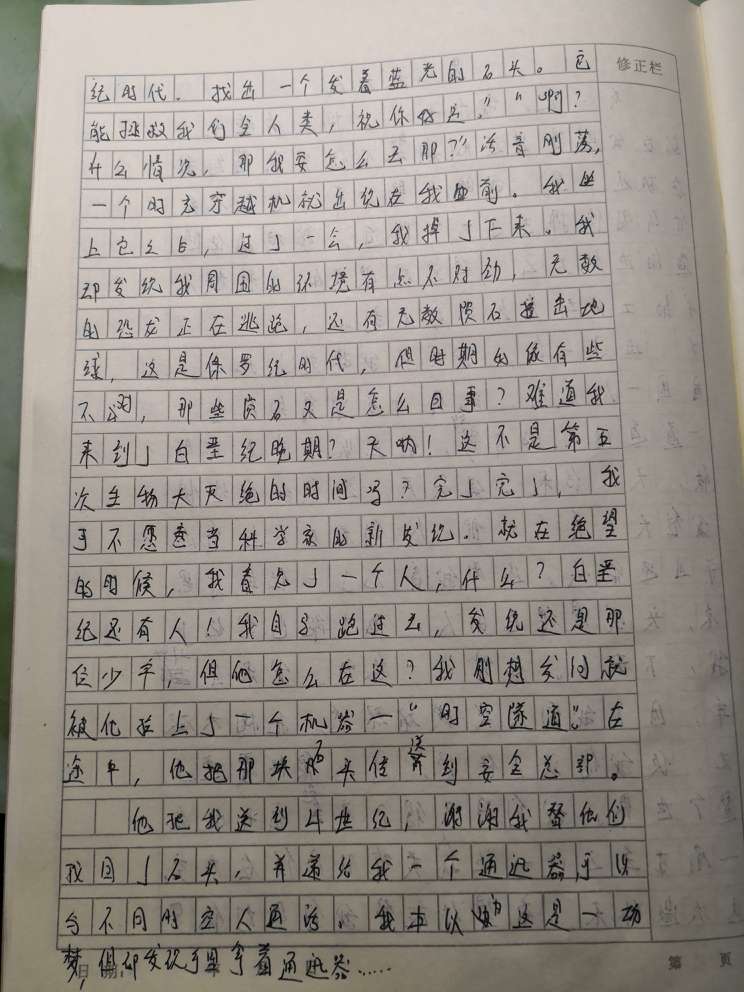 纪时代. 找出一个发着蓝光的石头。它
修正栏
能拯救我们全人类，祝你好运，”“啊？
什么情况，那我要怎么去那？”话音刚落，
一个时光穿越机就出现在我面前。我坐
上它之后，过了一会，我掉了下来。我
却发现我周围的环境有点不对劲，无数
的恐龙正在逃跑，还有无数陨石撞击地
球，这是侏罗纪时代，但时期的做有些
不对，那些陨石又是怎么回事？难道我
来到了白垩纪晚期？天呐！这不是第五
次生物大灭绝的时间吗？完了完了，我
可不愿意当科学家的新发现. 就在绝望
的时候，我看见了一个人，什么？白垩
纪还有人！我自子跑过去，发现还是那
位少年，但他怎么在这？我刚想发问就
被他拉上了一个机器一“时空隧道”。在
途中，他把那块石头传送到安全总部。
他把我送到4世纪，谢谢我替他们
找回了石头，并递给我一个通迅器，可以
与不同时空人通话. 我本以为这是一场
梦，但却发现手里拿着通迅器……
日期
第 页